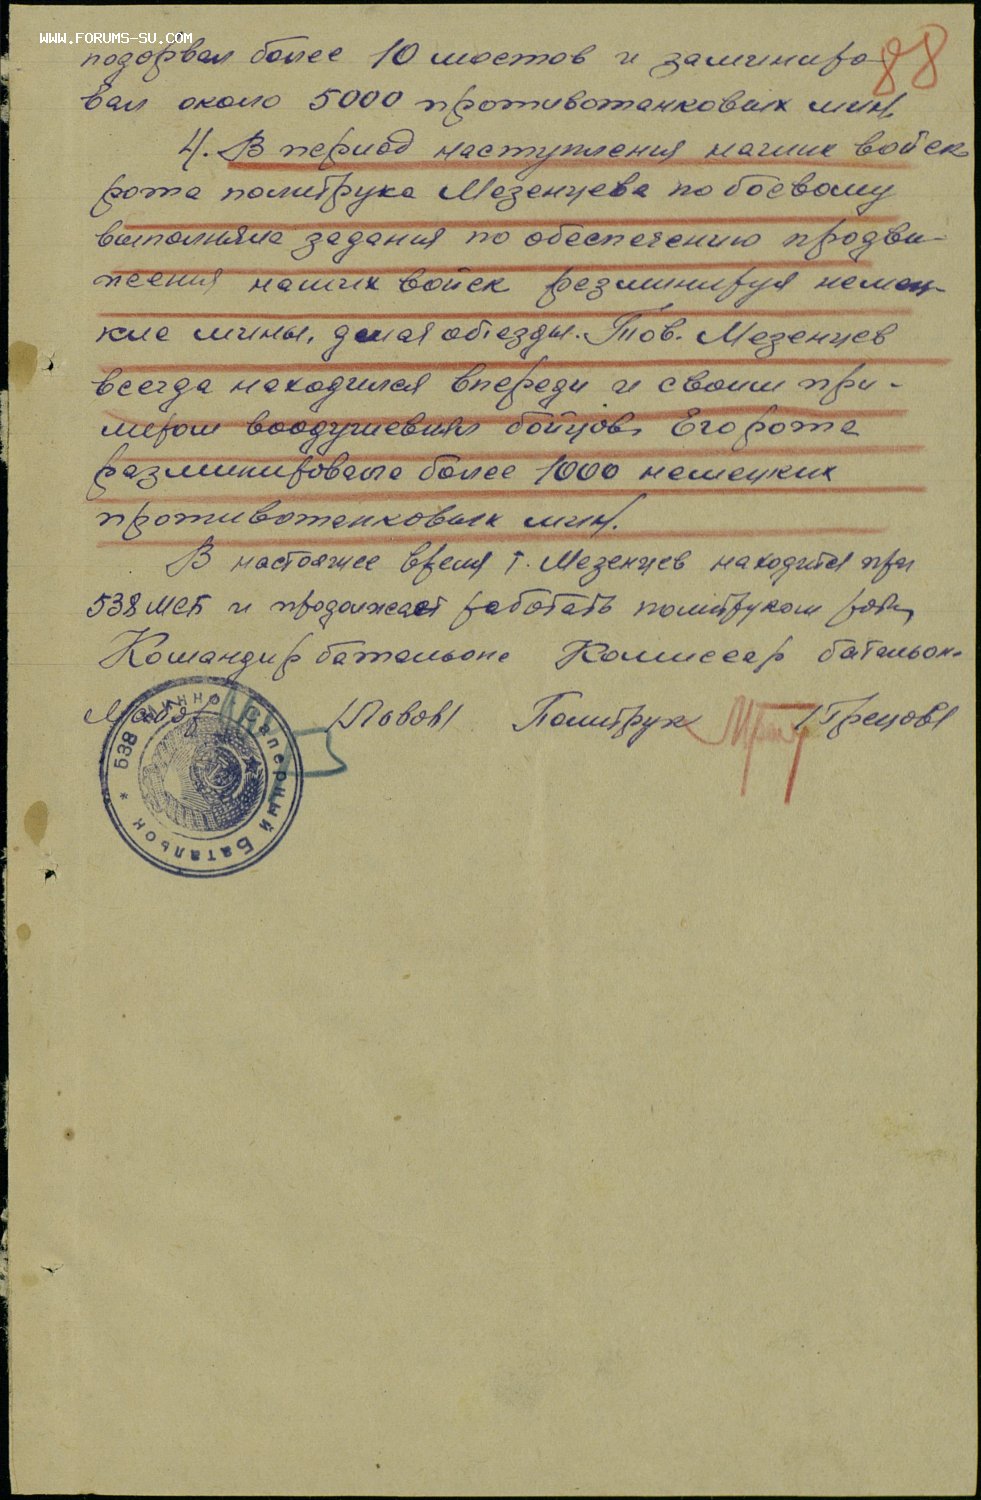 WWW.FORUMS-SU.COM
88
подорвал более 10 мостов и заминиро-
вал около 5000 противотанковых мин.
4. В период наступления наших войск
рота политрука Мезенцева по боевому
выполняла задания по обеспечению продви-
жения наших войск резминируя немец-
кие мины, делая объезды. Тов. Мезенцев
всегда находился впереди и своим при-
мером воодушевлял бойцов. Его рота
разминировала более 1000 немецких
противотанковых мин.
В настоящее время т. Мезенцев находится при
538 МСБ и продолжает работать политруком роты
Командир батальона Комиссар батальона
Майор /Львов/ Политрук /Грецов/
538 Минно Саперный Батальон *